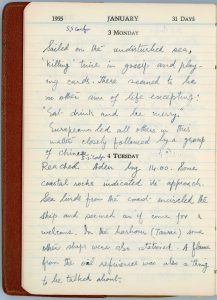 1955 JANUARY 31 DAYS
S.S. Corfu
3 MONDAY
Sailed on the undisturbed sea,
"killing" time in gossip and play-
ing cards. There seemed to be
no other aim of life excepting
"Eat drink and be merry."
Europeans led all others in this
matter closely followed by a group
of Chinese
S.S. Corfu
4 TUESDAY
Reached Aden by 14.00. Some
coastal rocks indicated its approach.
Sea birds from the coast encircled the
ship and seemed as if come for a
welcome. In the harbour some
other ships were also stationed. A flame
from the oil refineries was also a thing
to be talked about.